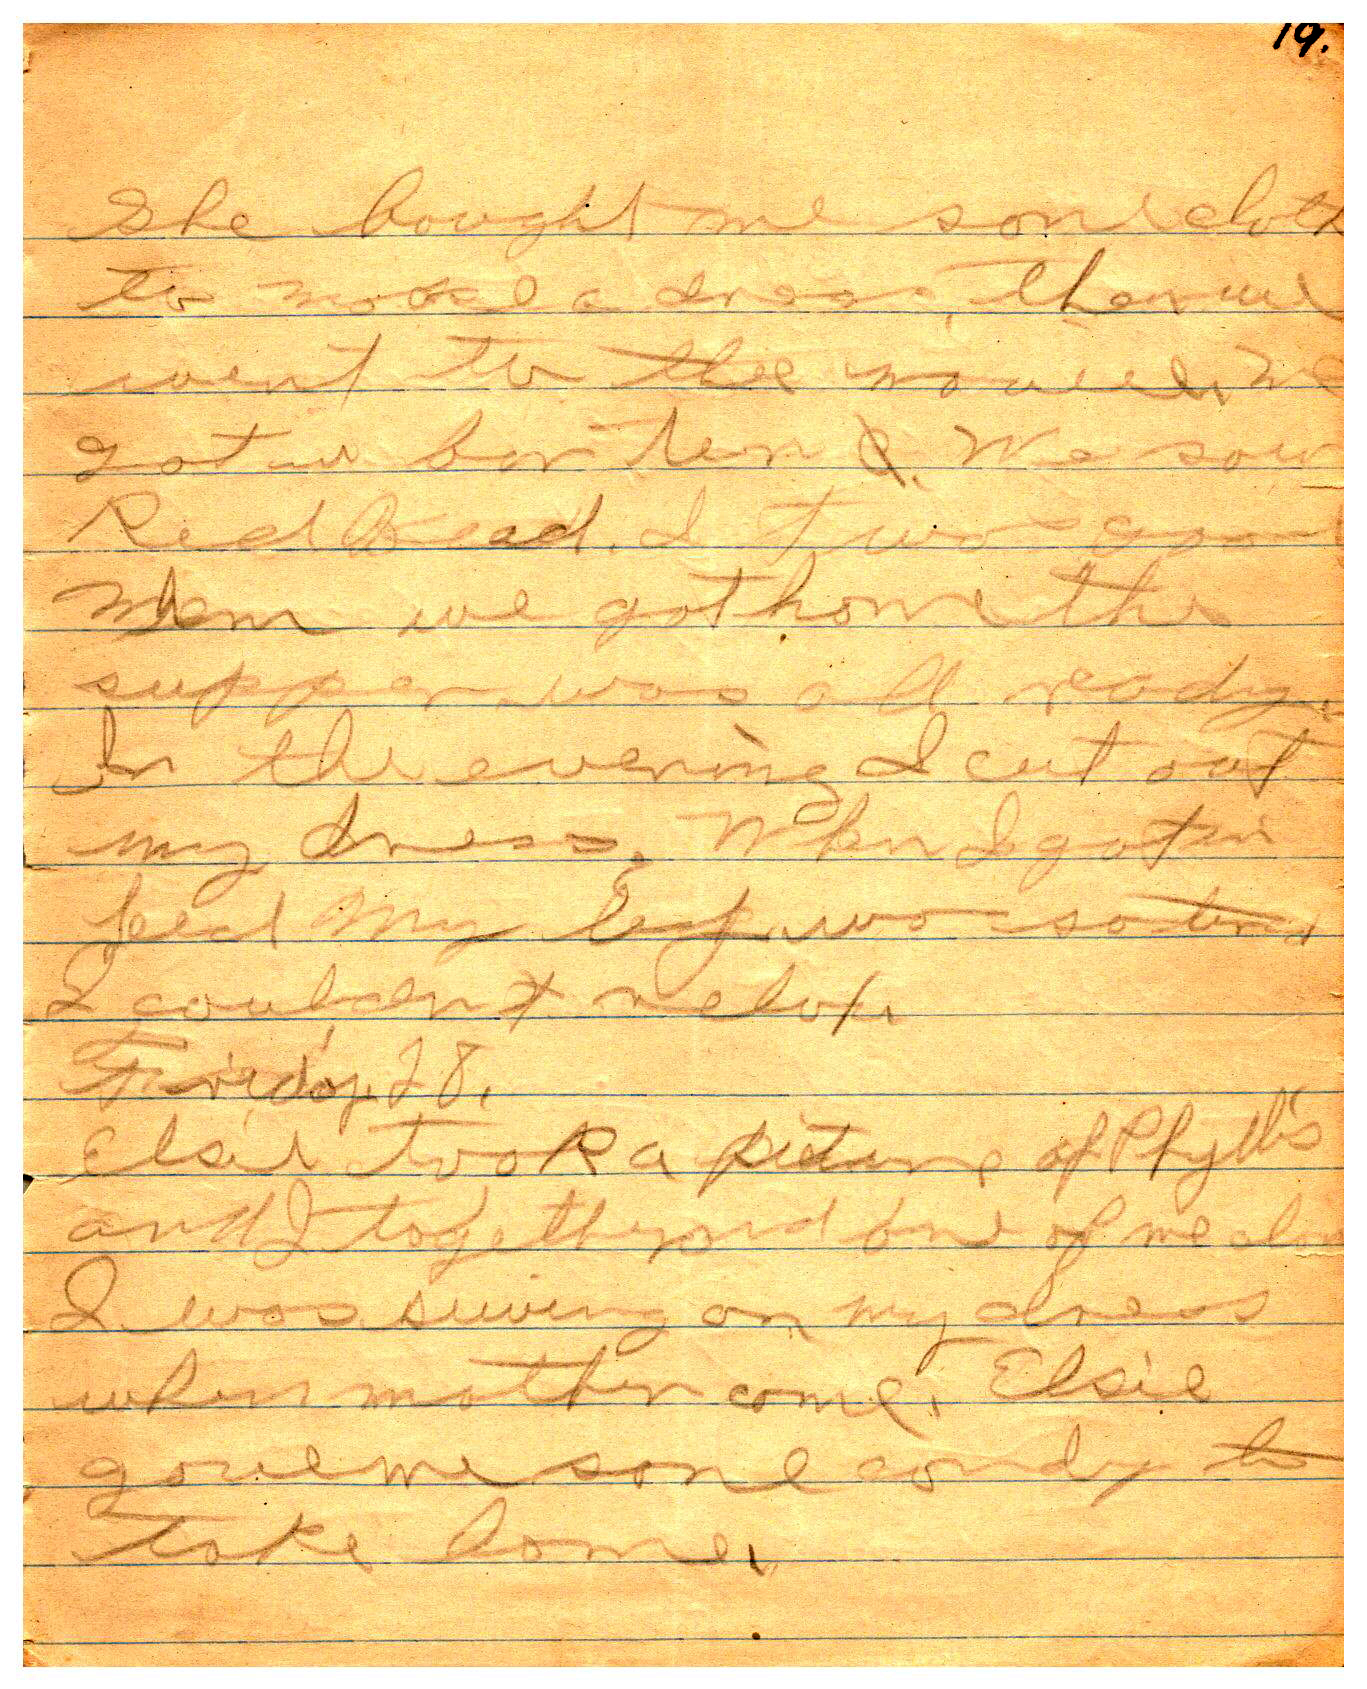 19.
She bought me some cloth
to make a dress, then we
went to the movie. We
got in for ten ¢. We saw
Red Head. It was good
When we got home the
supper was all ready.
In the evening I cut out
my dress. When I got in
bed my legs was so tired
I couldent relax.
Firday 28.
Elsie took a picture of Phyllis
and I together and one of me alone
I was suwing on my dress
when mother come. Elsie
gave me some candy to
take home.